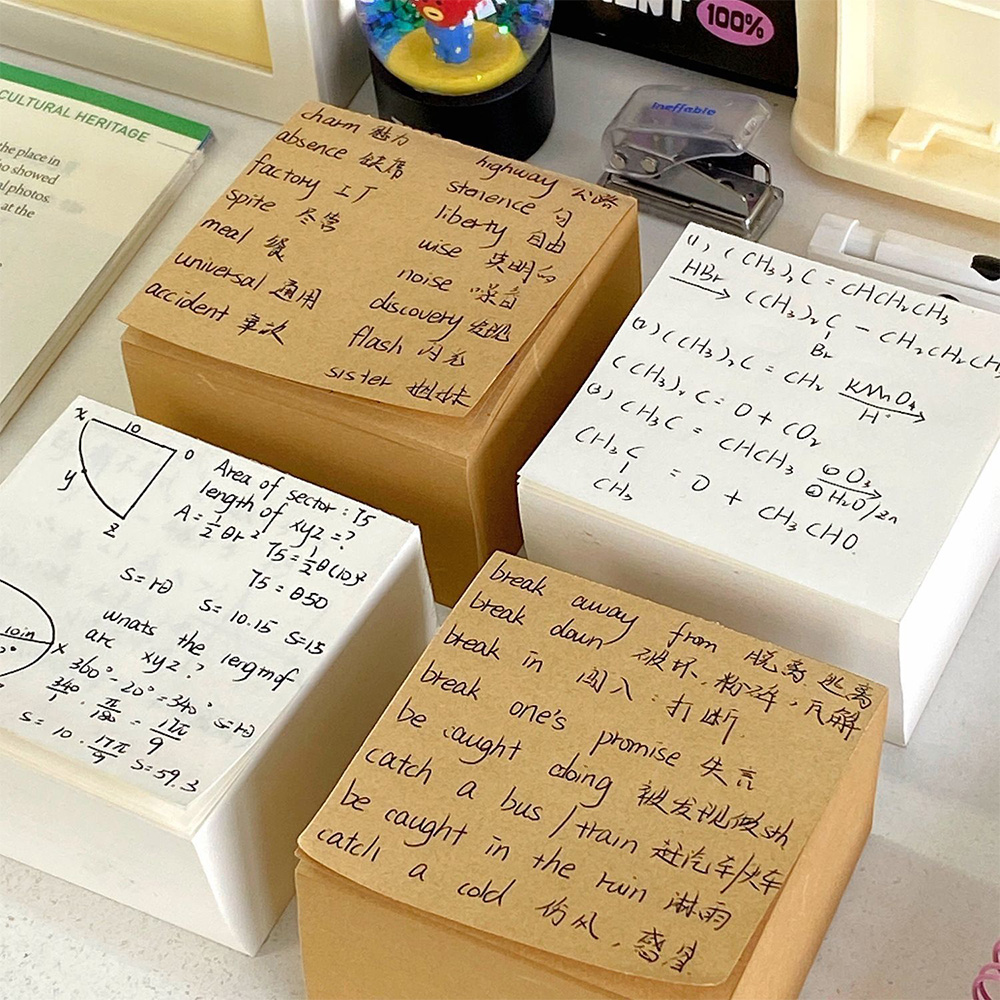 CULTURAL HERITAGE
the place in
ho showed
al photos.
at the
100%
ineffable
charm 魅力
absence 缺席
factory 工厂
spite 尽管
meal 餐
universal 通用
accident 事故
highway 公路
stenence 句
liberty 自由
wise 英明的
noise 噪音
discovery 发现
flash 闪光
sister 姐妹
(1) (CH₃)₂C = CHCH₂CH₃
HBr
(CH₃)₂C - CH₂CH₂CH₃
Br
(2) (CH₃)₂C = CH₂ KMnO₄
H⁺
(CH₃)₂C = O + CO₂
(3) CH₃C = CHCH₃ ① O₃
② H₂O/Zn
CH₃C = O + CH₃CHO
CH₃
x 10 0
y
z
Area of sector: 75
length of xyz = ?
A = ½θr²
75 = ½θ(10)²
75 = θ50
s = rθ s = 10.15 s = 15
whats the length of
arc xyz?
10in
x
360° - 20° = 340° s = rθ
340/1 · π/180 = 17π/9
s = 10 · 17π/9 s = 59.3
break away from 脱离,逃离
break down 破坏,粉碎,瓦解
break in 闯入:打断
break one's promise 失言
be caught doing 被发现做sth
catch a bus / train 赶汽车/火车
be caught in the rain 淋雨
catch a cold 伤风,感冒